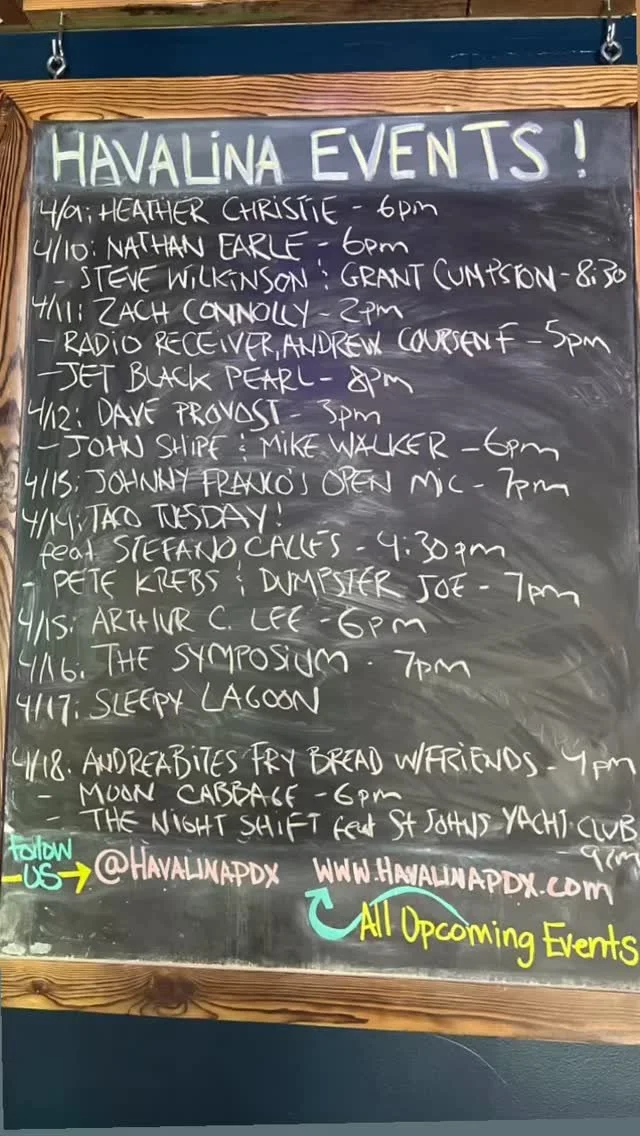 HAVALINA EVENTS!
4/9: HEATHER CHRISTIE - 6pm
4/10: NATHAN EARLE - 6pm
- STEVE WILKINSON & GRANT CUMPSTON - 8:30
4/11: ZACH CONNOLLY - 2pm
- RADIO RECEIVER, ANDREW COURSEN F - 5pm
- JET BLACK PEARL - 8pm
4/12: DAVE PROVOST - 3pm
- JOHN SHIPE & MIKE WALKER - 6pm
4/15: JOHNNY FRANCO'S OPEN MIC - 7pm
4/14: TACO TUESDAY!
feat STEFANO CALLES - 4:30pm
- PETE KREBS & DUMPSTER JOE - 7pm
4/15: ARTHUR C. LEE - 6pm
4/16: THE SYMPOSIUM - 7pm
4/17: SLEEPY LAGOON
4/18: ANDREABITES FRY BREAD W/FRIENDS - 4pm
- MOON CABBAGE - 6pm
- THE NIGHT SHIFT feat St JOHNS YACHT CLUB
9pm
FOLLOW
US → @HAVALINAPDX WWW.HAVALINAPDX.COM
All Upcoming Events